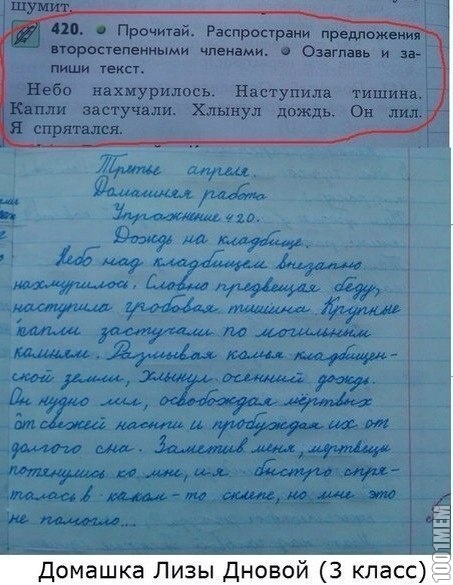 шумит.
420. Прочитай. Распространи предложения
второстепенными членами. Озаглавь и за-
пиши текст.
Небо нахмурилось. Наступила тишина.
Капли застучали. Хлынул дождь. Он лил.
Я спрятался.
Третье апреля.
Домашняя работа
Упражнение 420.
Дождь на кладбище.
Небо над кладбищем внезапно
нахмурилось. Словно предвещая беду,
наступила гробовая тишина. Крупные
капли застучали по могильным
камням. Размывая комья кладбищен-
ской земли, хлынул осенний дождь.
Он нудно лил, освобождая мёртвых
от свежей насыпи и пробуждая их от
долгого сна. Заметив меня, мертвецы
потянулись ко мне, и я быстро спря-
талась в каком-то склепе, но мне это
не помогло...
Домашка Лизы Дновой (3 класс)
1001МЕМ